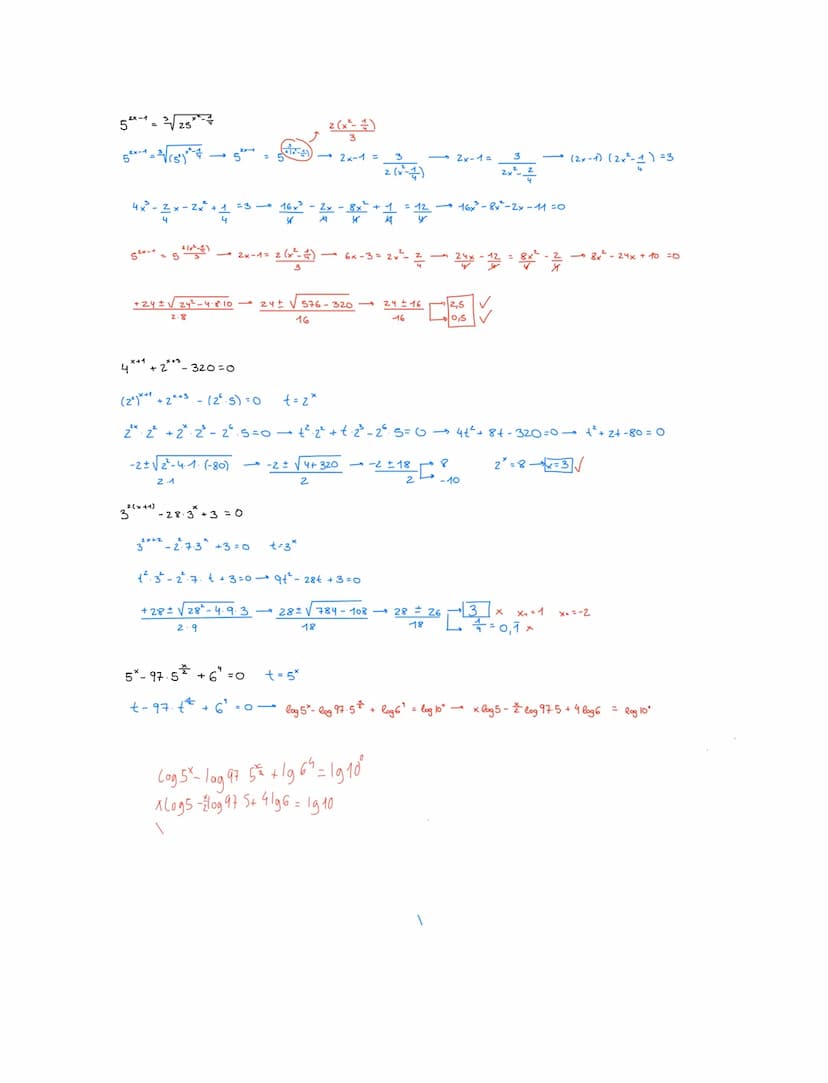 5^(2x-1) = ∛(25^(x²-1/4))
2(x²-1/4)/3
5^(2x-1) = ∛((5²)^(x²-1/4)) → 5^(2x-1) = 5^(3/(2(x²-1/4))) → 2x-1 = 3/(2(x²-1/4)) → 2x-1 = 3/(2x²-2/4) → (2x-1)(2x²-1/4) = 3
4x³ - 2/4 x - 2x² + 1/4 = 3 → 16x³/4 - 2x/4 - 8x²/4 + 1/4 = 12/4 → 16x³-8x²-2x-11=0
5^(2x-1) = 5^(2(x²-1/4)/3) → 2x-1 = 2(x²-1/4)/3 → 6x-3 = 2x²-2/4 → 24x/4 - 12/4 = 8x²/4 - 2/4 → 8x²-24x+10=0
(+24±√(24²-4·8·10))/(2·8) → (24±√(576-320))/16 → (24±16)/16 → 2,5 ✓
0,5 ✓
4^(x+1) + 2^(x+3) - 320 = 0
(2²)^(x+1) + 2^(x+3) - (2⁶·5) = 0 t = 2^x
2^(2x)·2² + 2^x·2³ - 2⁶·5 = 0 → t²·2² + t·2³ - 2⁶·5 = 0 → 4t² + 8t - 320 = 0 → t² + 2t - 80 = 0
(-2±√(2²-4·1·(-80)))/(2·1) → (-2±√(4+320))/2 → (-2±18)/2 → 8 2^x = 8 → x=3 ✓
-10
3^(2(x+1)) - 28·3^x + 3 = 0
3^(2x+2) - 2²·7·3^x + 3 = 0 t=3^x
t²·3² - 2²·7·t + 3 = 0 → 9t² - 28t + 3 = 0
(+28±√(28²-4·9·3))/(2·9) → (28±√(784-108))/18 → (28±26)/18 → 3 x x₁=1 x₂=-2
1/9 = 0,1̄ x
5^x - 97·5^(x/2) + 6⁴ = 0 t = 5^x
log5^x - log97·5^(x/2) + log6⁴ = log10⁰ → x log5 - x/2 log97·5 + 4log6 = log10⁰
log5^x - log97 5^(x/2) + lg6⁴ = lg10⁰
xlog5 - x/2 log97 5 + 4lg6 = lg10